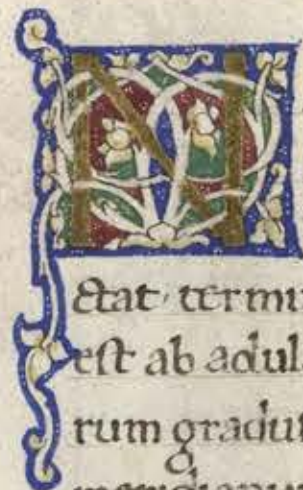 N
ctat, termi
est ab adul
rum gradu